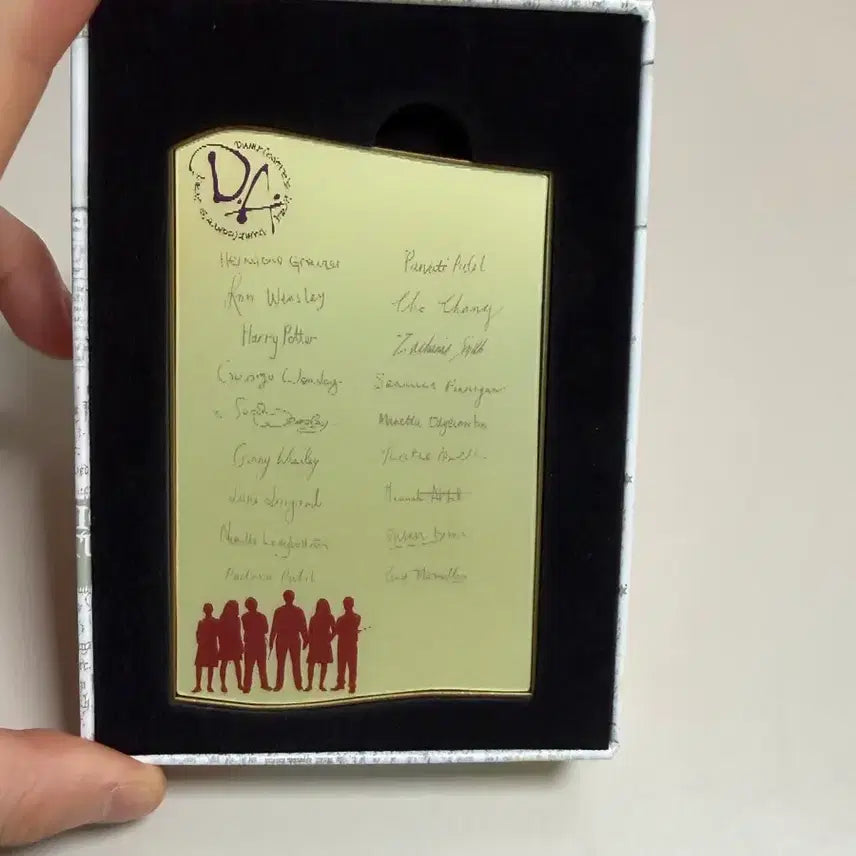 D.A.
Dumbledore's Army
Dumbledore's Army
Hermione Granger
Ron Weasley
Harry Potter
George Weasley
Ginny Weasley
Luna Lovegood
Neville Longbottom
Padma Patil
Parvati Patil
Cho Chang
Zacharias Smith
Seamus Finnigan
Marietta Edgecombe
Hannah Abbott
Susan Bones